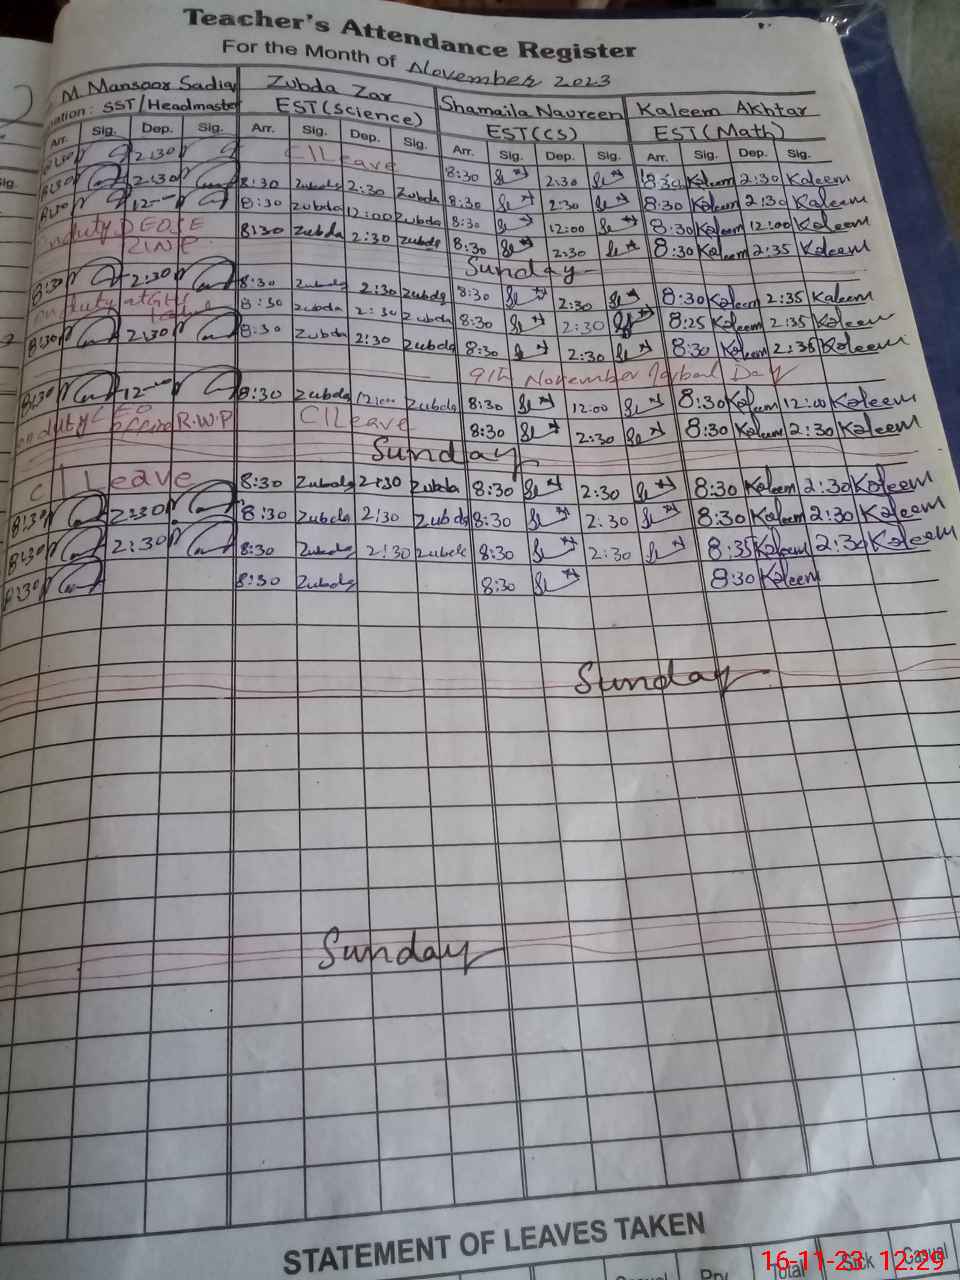 Teacher's Attendance Register
For the Month of November 2023
M Mansoor Sadiq Zubda Zar Shamaila Naureen Kaleem Akhtar
SST/Headmaster EST(Science) EST(CS) EST(Math)
Arr. Sig. Dep. Sig. Arr. Sig. Dep. Sig. Arr. Sig. Dep. Sig. Arr. Sig. Dep. Sig.
2:30 C/Leave 8:30 2:30 8:30 Kaleem 2:30 Kaleem
8:30 2:30 8:30 Zubda 2:30 Zubda 8:30 2:30 8:30 Kaleem 2:30 Kaleem
8:30 12 8:30 Zubda 12:00 Zubda 8:30 12:00 8:30 Kaleem 12:00 Kaleem
8:30 Zubda 2:30 Zubda 8:30 2:30 8:30 Kaleem 2:35 Kaleem
Sunday
8:30 2:30 8:30 Zubda 2:30 Zubda 8:30 2:30 8:30 Kaleem 2:35 Kaleem
8:30 Zubda 2:30 Zubda 8:30 2:30 8:25 Kaleem 2:35 Kaleem
8:30 2:30 8:30 Zubda 2:30 Zubda 8:30 2:30 8:30 Kaleem 2:35 Kaleem
9th November Iqbal Day
8:30 12 8:30 Zubda 12:00 Zubda 8:30 12:00 8:30 Kaleem 12:00 Kaleem
R.W.P C/Leave 8:30 2:30 8:30 Kaleem 2:30 Kaleem
Sunday
C/Leave 8:30 Zubda 2:30 Zubda 8:30 2:30 8:30 Kaleem 2:30 Kaleem
8:30 2:30 8:30 Zubda 2:30 Zubda 8:30 2:30 8:30 Kaleem 2:30 Kaleem
8:30 2:30 8:30 Zubda 2:30 Zubda 8:30 2:30 8:35 Kaleem 2:30 Kaleem
8:30 8:30 Zubda 8:30 8:30 Kaleem
Sunday
Sunday
STATEMENT OF LEAVES TAKEN
Total Sick Casual
16-11-23 12:29